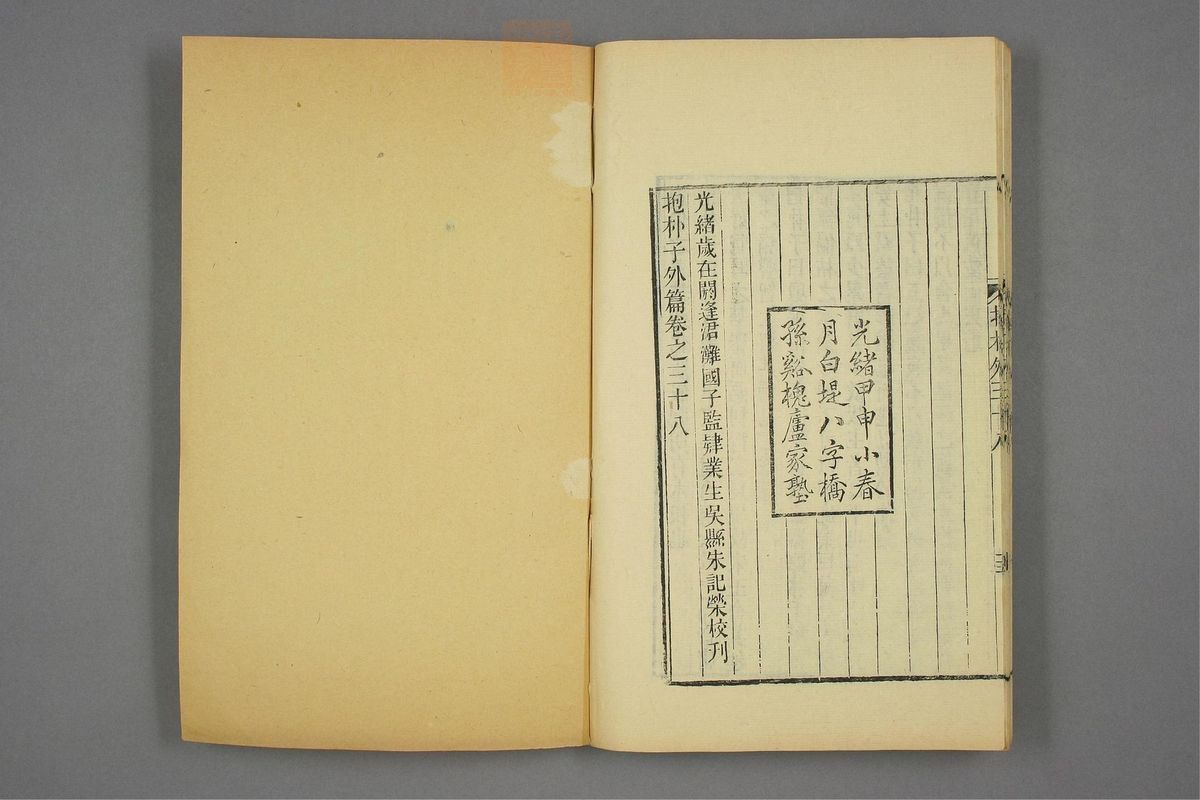 抱朴外三十八
三
光緒甲申小春
月白堤八字橋
孫谿槐廬家塾
光緒歲在閼逢涒灘國子監肄業生吳縣朱記榮校刊
抱朴子外篇卷之三十八